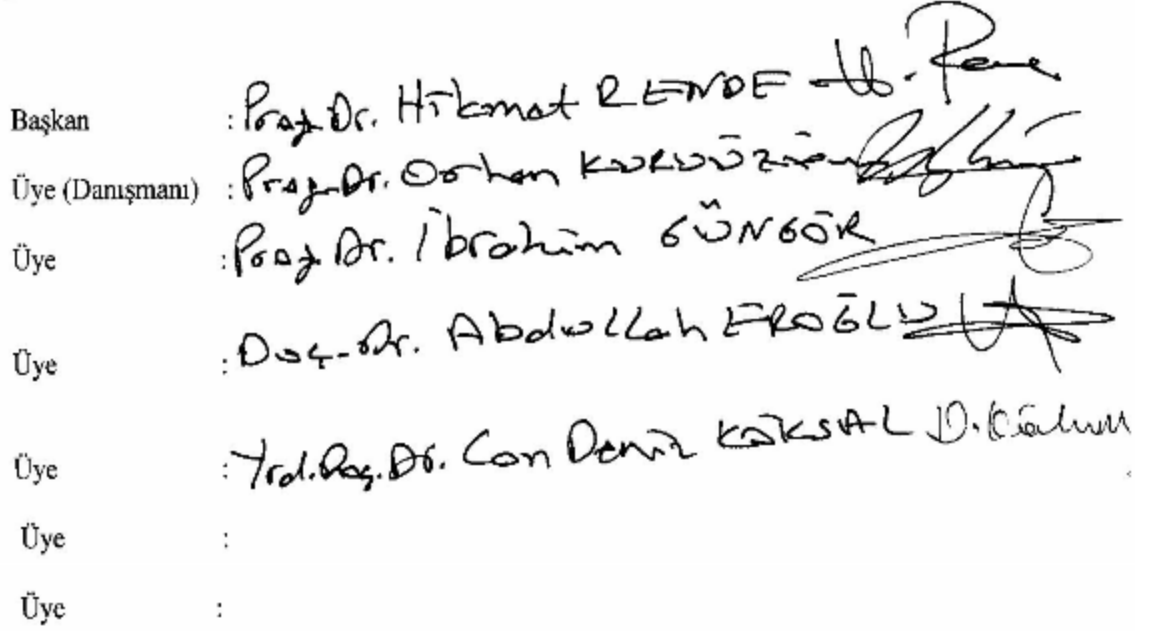 Başkan : Prof. Dr. Hikmet RENDE H. Rende
Üye (Danışmanı) : Prof. Dr. Orhan KURUÜZÜM
Üye : Prof. Dr. İbrahim GÜNGÖR
Üye : Doç. Dr. Abdullah EROĞLU
Üye : Yrd. Doç. Dr. Can Deniz KÖKSAL D. Köksal
Üye :
Üye :